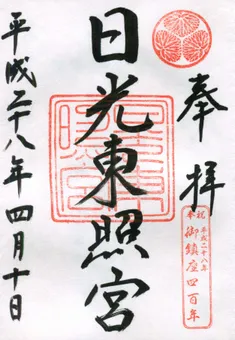 奉拝
日光東照宮
平成二十八年四月十日
祝
平成二十八年
奉
御鎮座四百年